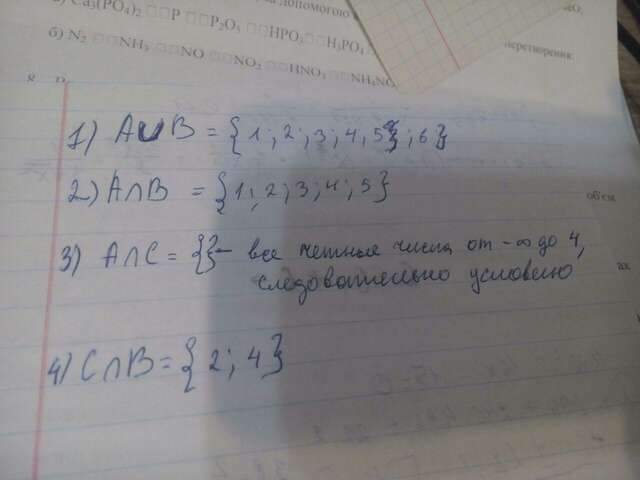 а) Ca₃(PO₄)₂ □□P □□P₂O₅ □□HPO₃□□H₃PO₄
допомогою
б) N₂ □□NH₃ □□NO □□NO₂ □□HNO₃ □□NH₄NO
перетворення:
1) A∪B = {1; 2; 3; 4, 5}; 6}
2) A∩B = {1; 2; 3; 4; 5}
об'єм
3) A∩C = {} – все четные числа от -∞ до 4,
следовательно условию
ах
4) C∩B = {2; 4}